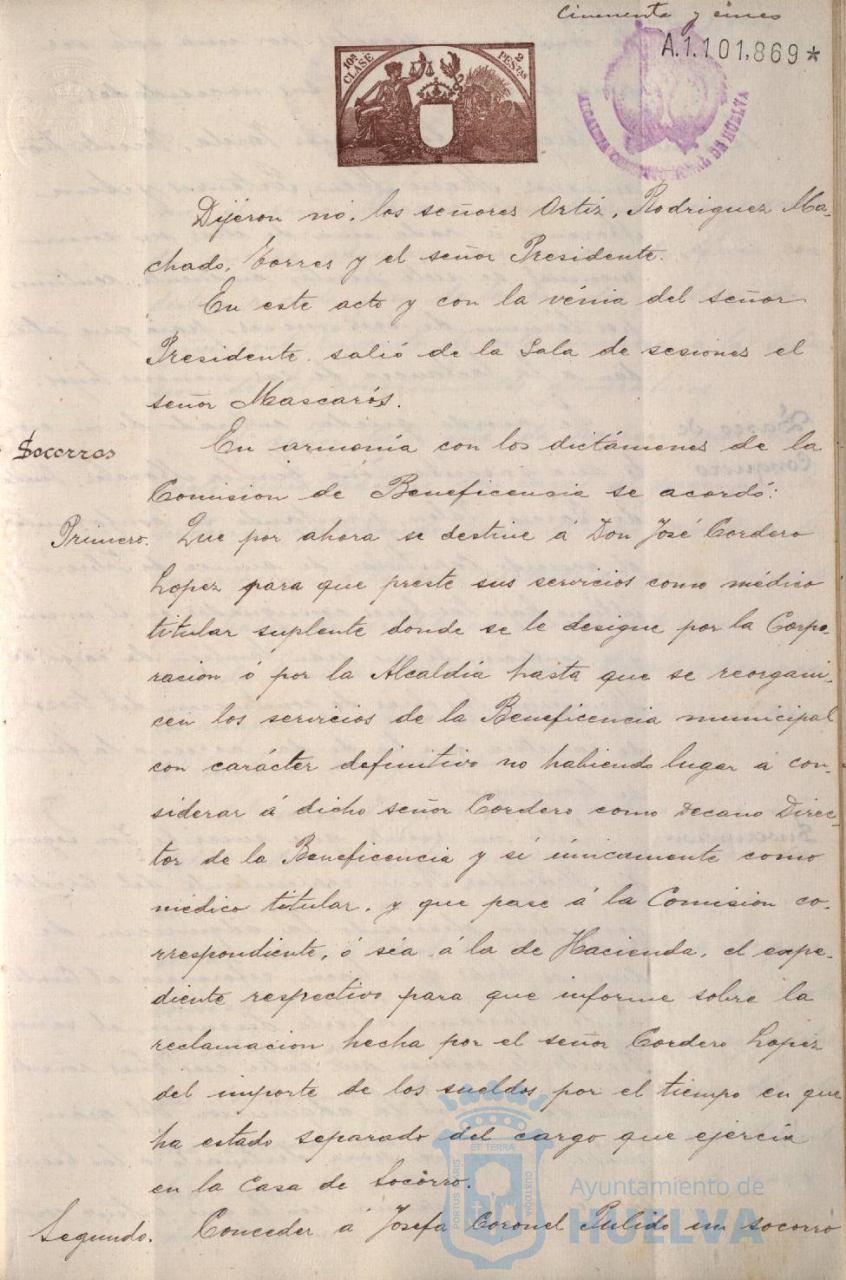 Cincuenta y cinco
A.1.101,869*
10ª CLASE
2 PESTAS
ALCALDIA CONSTITUCIONAL DE HUELVA
Dijéron nó, los señores Ortiz, Rodriguez Ma-
chado, Torres y el señor Presidente.
En este acto y con la vénia del señor
Presidente salió de la Sala de sesiones el
señor Mascarós.
Socorros
En armonía con los dictámenes de la
Comision de Beneficensia se acordó:
Primero. Que por ahora se destine á Don José Cordero
Lopez para que preste sus servicios como médico
titular suplente donde se le desigue por la Corpo-
racion ó por la Alcaldía hasta que se reorgani-
cen los servicios de la Beneficencia municipal
con carácter definitivo no habiendo lugar á con-
siderar á dicho señor Cordero como Decano Direc-
tor de la Beneficencia y sí únicamente como
médico titular, y que pase á la Comision co-
rrespondiente, ó séa á la de Hacienda, el espe-
diente respectivo para que informe sobre la
reclamacion hecha por el señor Cordero Lopez
del importe de los sueldos por el tiempo en que
ha estado separado del cargo que ejercía
en la Casa de Socorro.
Segundo. Conceder á Josefa Coronel Pulido un socorro
PORTUS MARIS ET TERRAE CUSTODIA
Ayuntamiento de
HUELVA